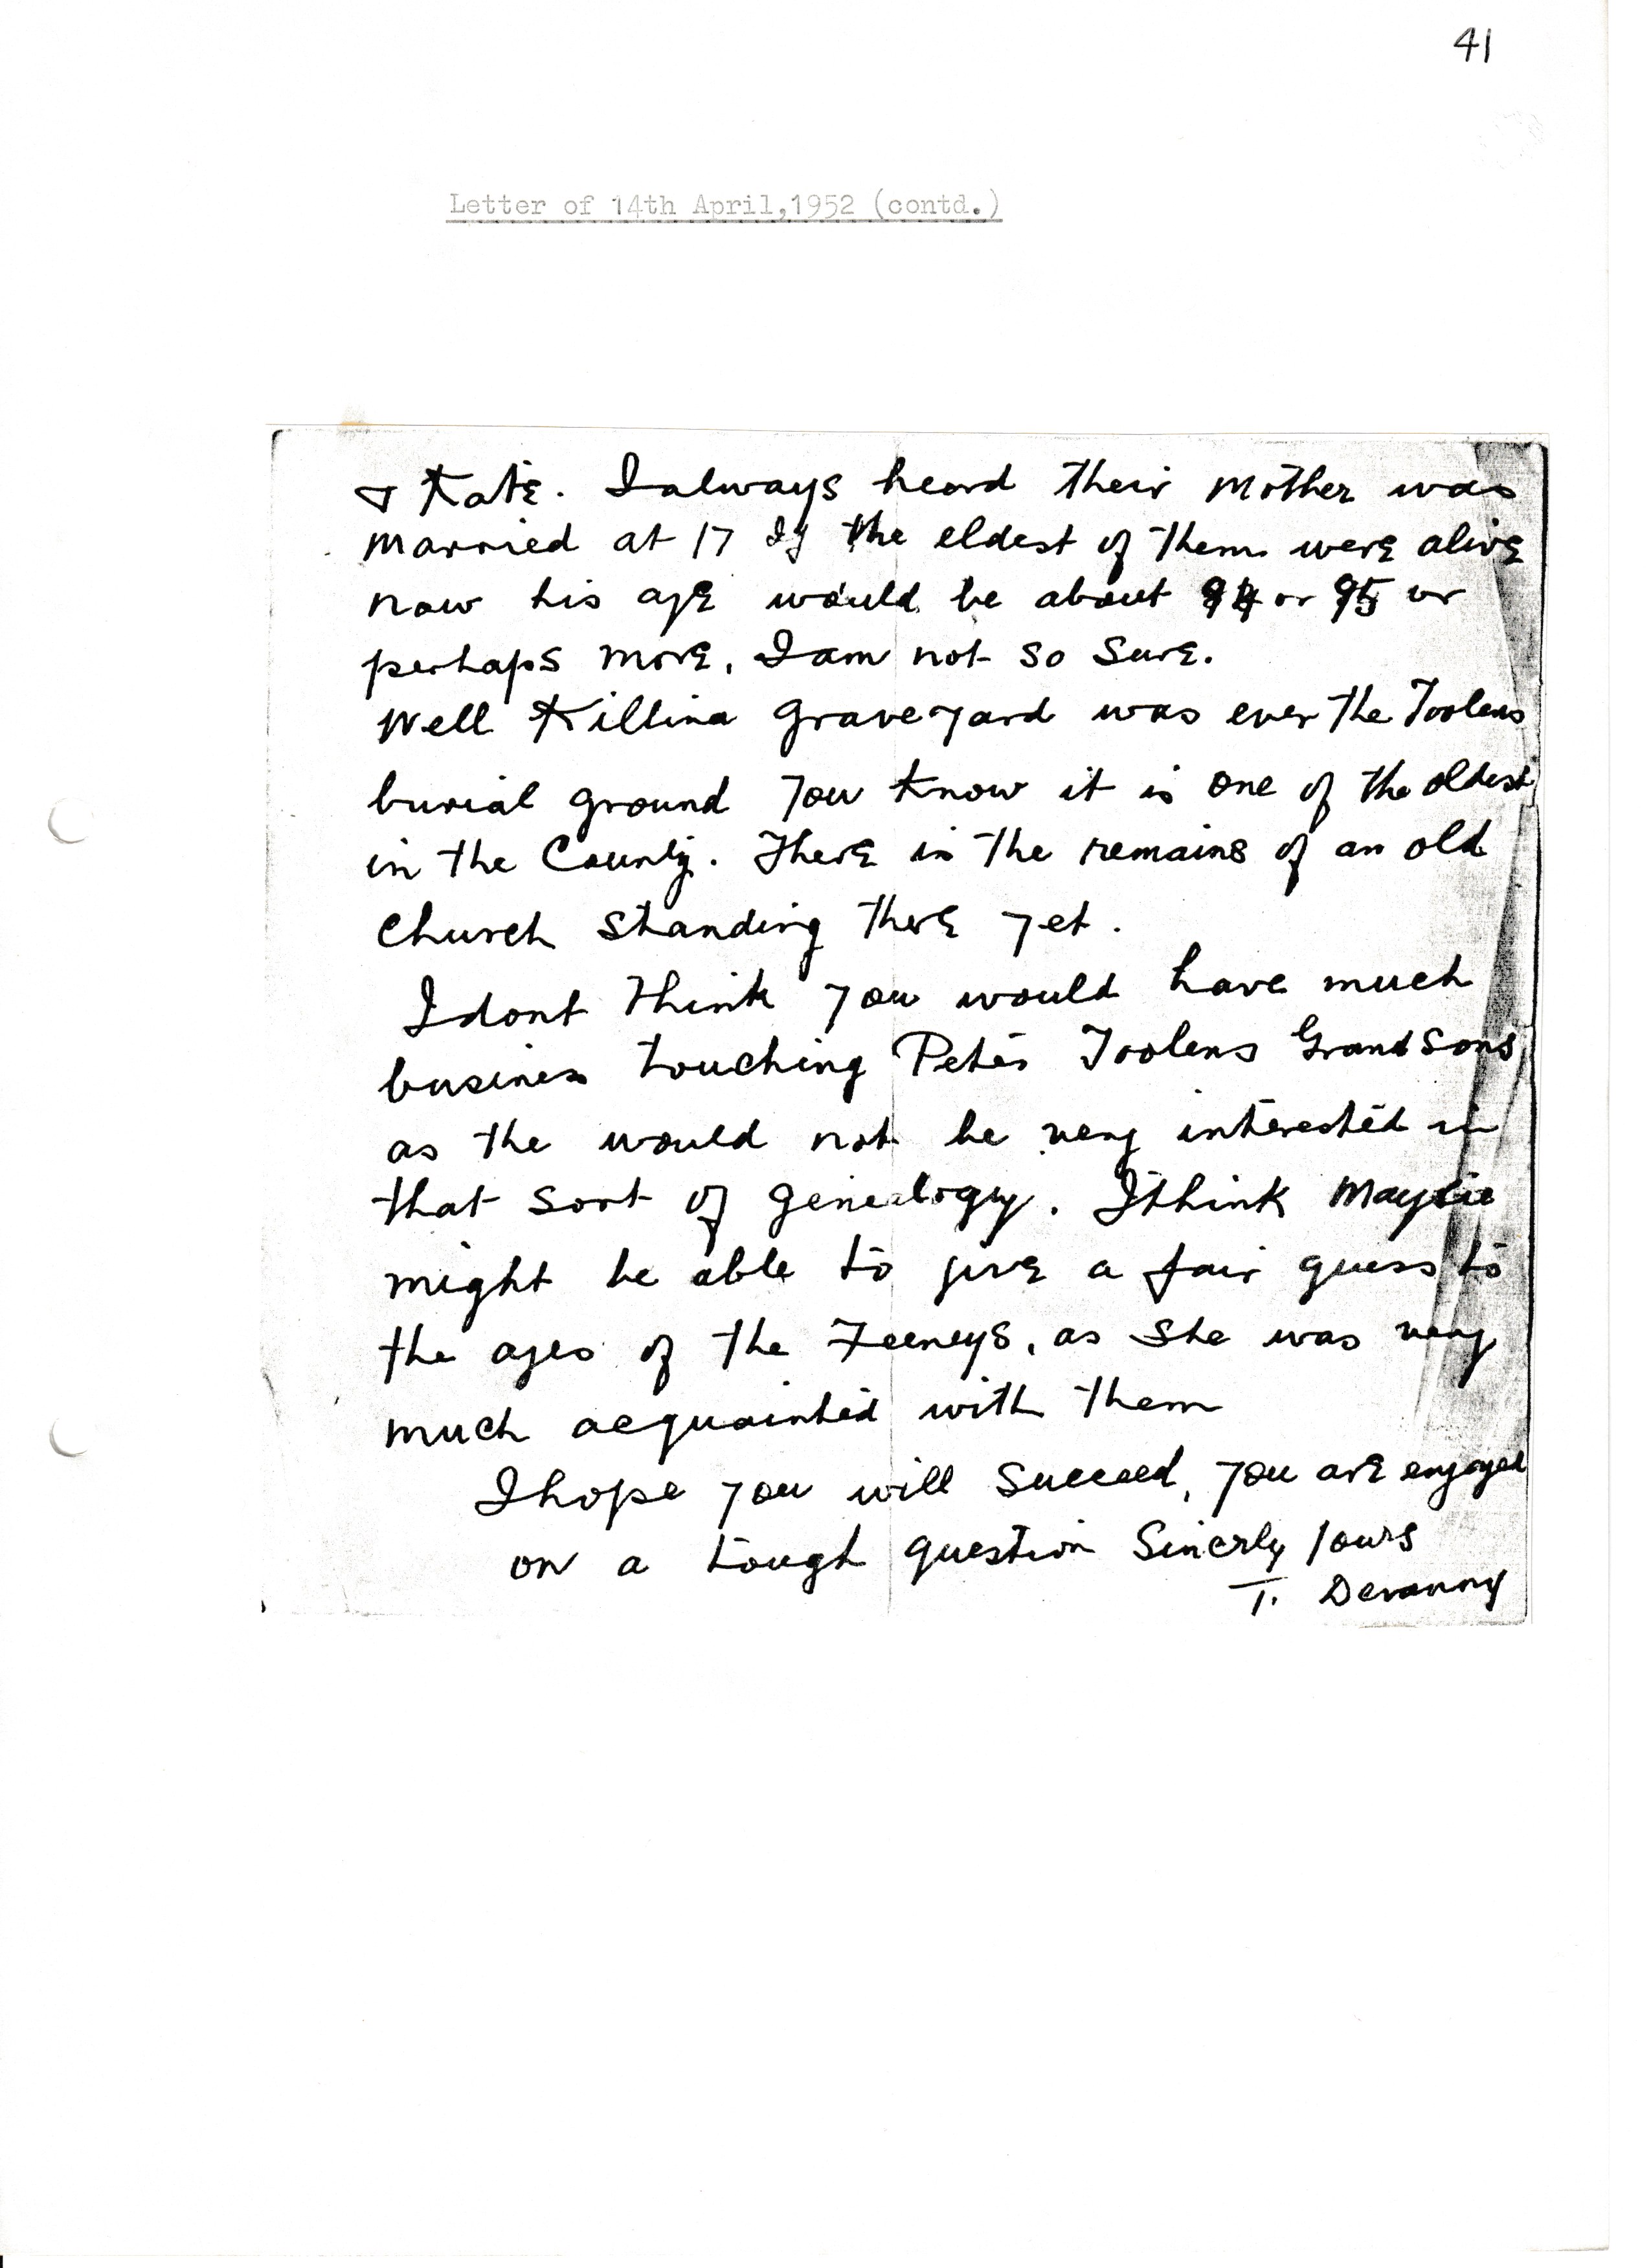 41
Letter of 14th April,1952 (contd.)
& Kate. I always heard their Mother was
Married at 17 If the eldest of them were alive
now his age would be about 94 or 95 or
perhaps more, I am not so sure.
Well Killina graveyard was ever the Toolens
burial ground You know it is one of the oldest
in the County. There is the remains of an old
Church standing there yet.
I dont think you would have much
business touching Peter Toolens Grandsons
as the would not be very interested in
that sort of genealogy. I think Maysie
might be able to give a fair guess to
the ages of the Feeneys, as she was very
much acquainted with them
I hope you will succeed, you are engaged
on a tough question Sincerly Yours
T. Devanny